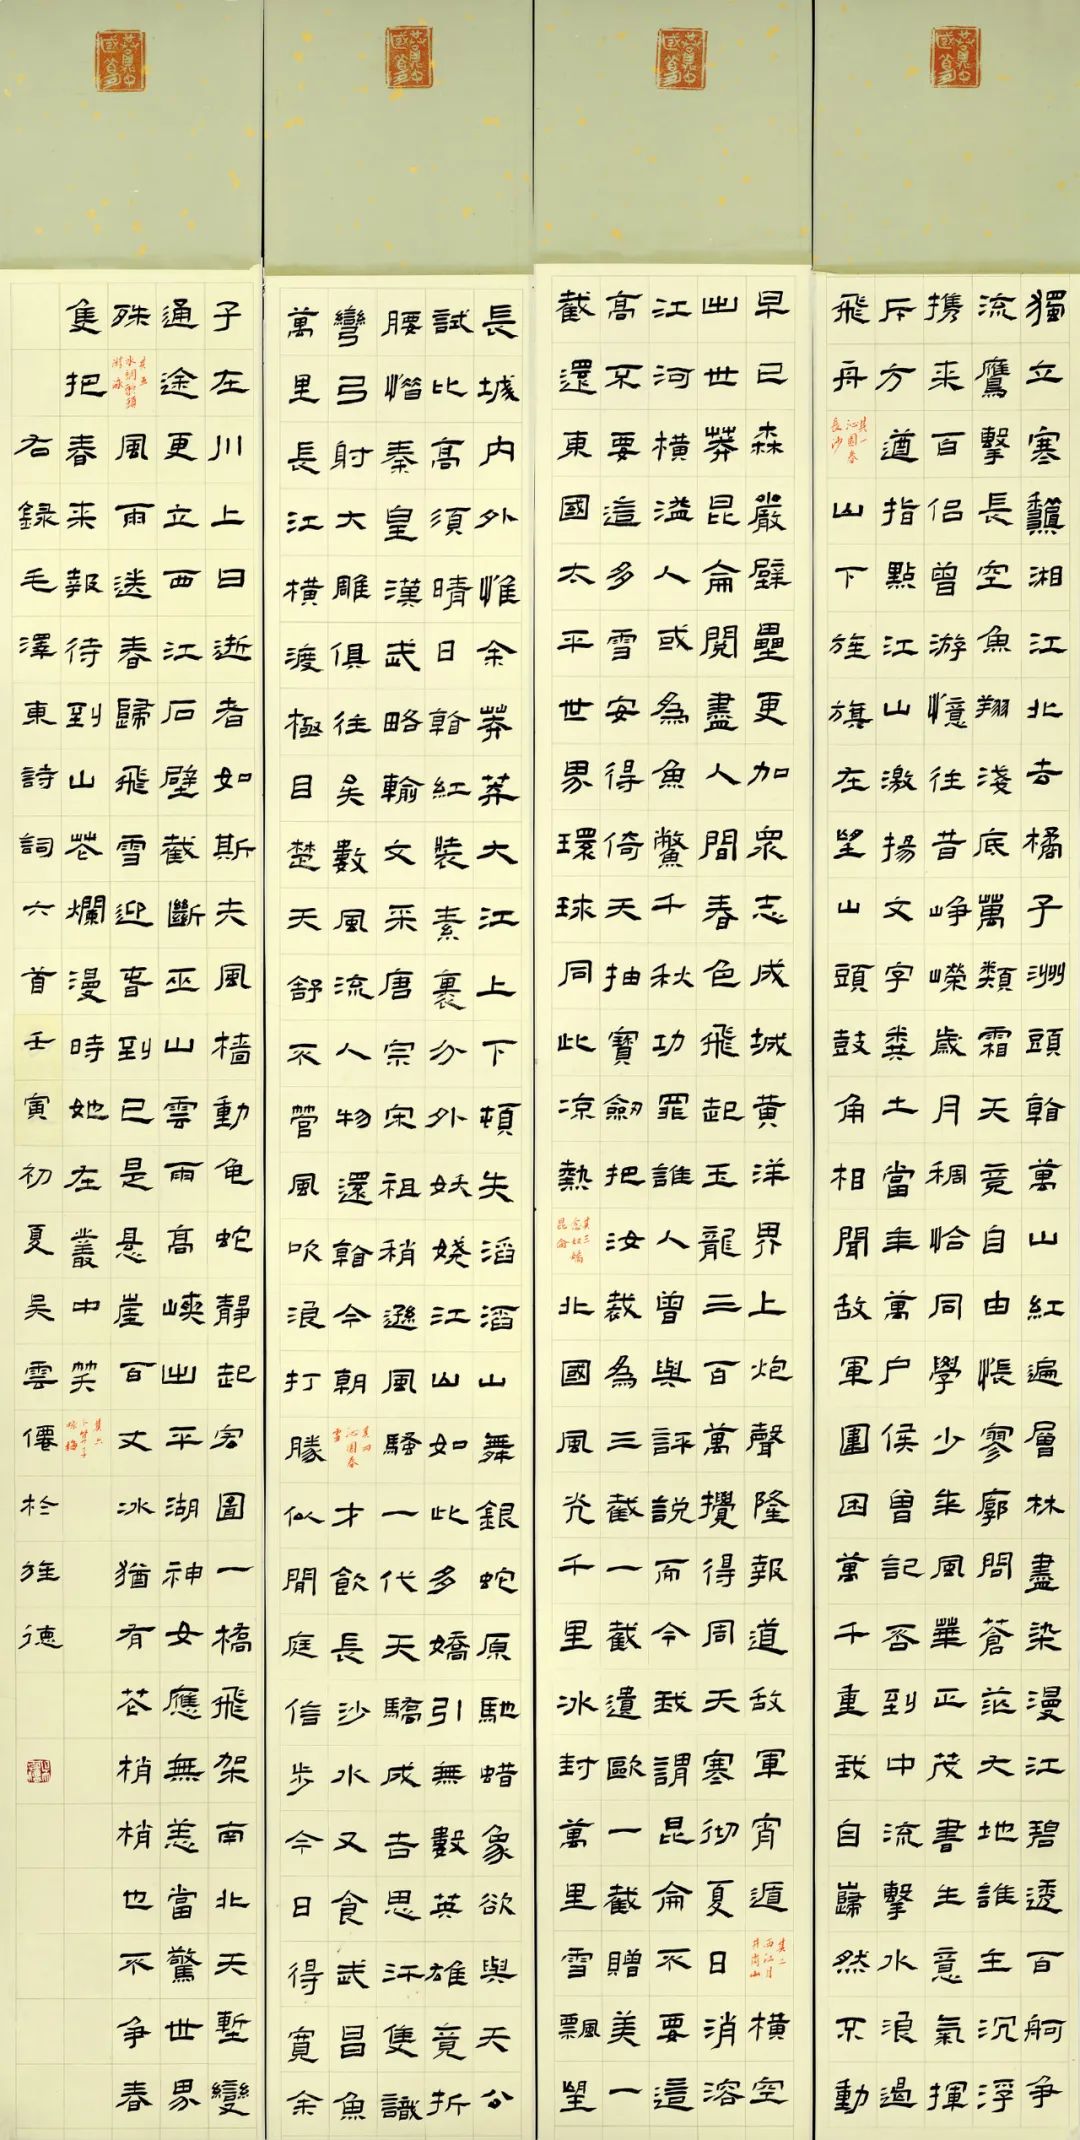 獨立寒龝湘江北去橘子洲頭看萬山紅遍層林盡染漫江碧透百舸爭
流鷹擊長空魚翔淺底萬類霜天竟自由悵寥廓問蒼茫大地誰主沉浮
携來百侶曾游憶往昔崢嶸歲月稠恰同學少年風華正茂書生意氣揮
斥方遒指點江山激揚文字糞土當年萬户侯曾記否到中流擊水浪遏
飛舟 其一沁園春長沙 山下旌旗在望山頭鼓角相聞敵軍圍困萬千重我自巋然不動
早已森嚴壁壘更加眾志成城黃洋界上炮聲隆報道敵軍宵遁 其二西江月井崗山 橫空
出世莽昆侖閱盡人間春色飛起玉龍三百萬攪得周天寒徹夏日消溶
江河橫溢人或為魚鱉千秋功罪誰人曾與評說而今我謂昆侖不要這
高不要這多雪安得倚天抽寶劍把汝裁為三截一截遺歐一截贈美一
截還東國太平世界環球同此凉熱 其三念奴嬌昆侖 北國風光千里冰封萬里雪飄望
長城內外惟余莽莽大江上下頓失滔滔山舞銀蛇原馳蜡象欲與天公
試比高須晴日看紅裝素裹分外妖嬈江山如此多嬌引無數英雄竟折
腰惜秦皇漢武略輸文采唐宗宋祖稍遜風騷一代天驕成吉思汗隻識
彎弓射大雕俱往矣數風流人物還看今朝 其四沁園春雪 才飲長沙水又食武昌魚
萬里長江橫渡極目楚天舒不管風吹浪打勝似閒庭信步今日得寬余
子在川上曰逝者如斯夫風檣動龜蛇靜起宏圖一橋飛架南北天塹變
通途更立西江石壁截斷巫山雲雨高峽出平湖神女應無恙當驚世界
殊 其五水調歌頭游泳 風雨送春歸飛雪迎春到已是懸崖百丈冰猶有花梢梢也不爭春
隻把春來報待到山花爛漫時她在叢中笑 其六卜算子咏梅
右録毛澤東詩詞六首壬寅初夏吳雲僊於旌德